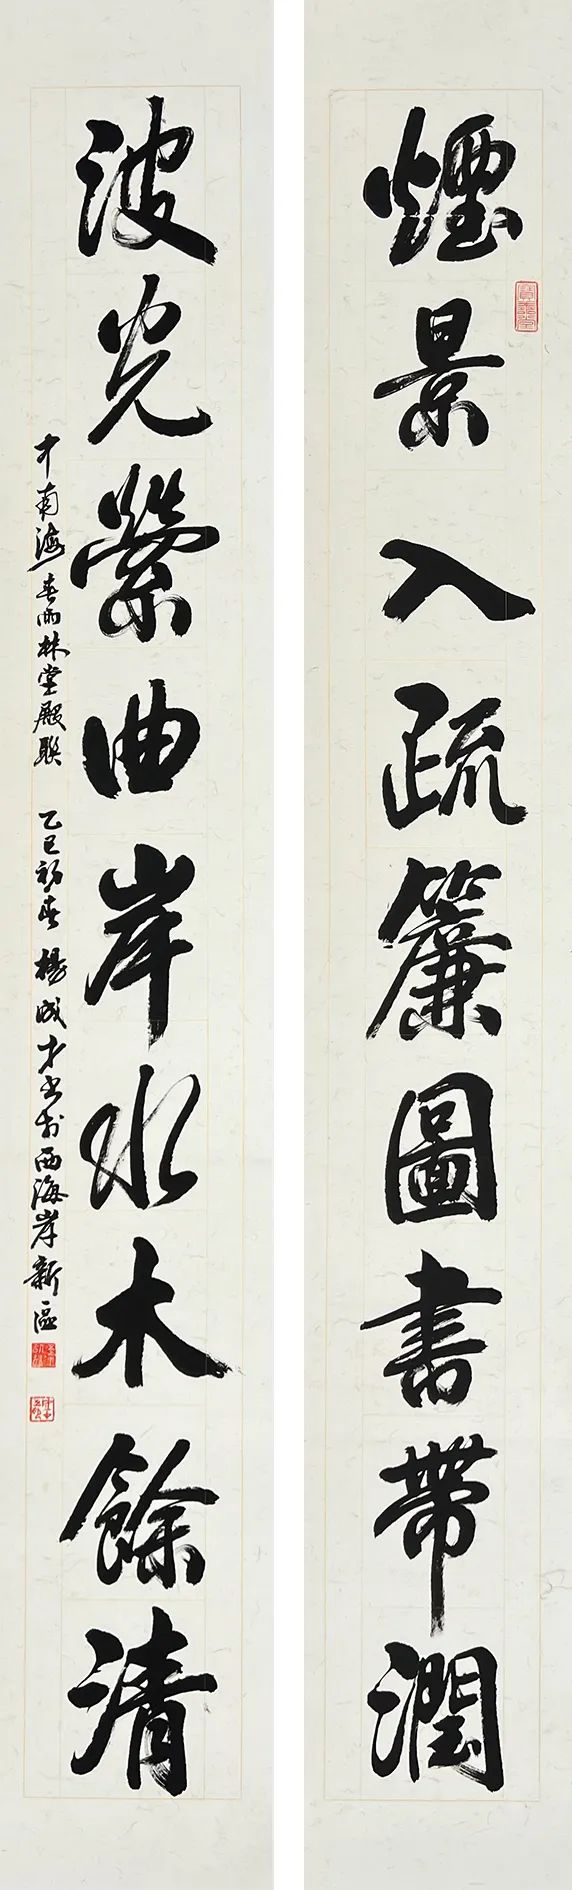 煙景入疏簾圖書帶潤
波光縈曲岸水木餘清
中南海春雨林堂殿聯 乙巳初春 楊成才書於西海岸新區